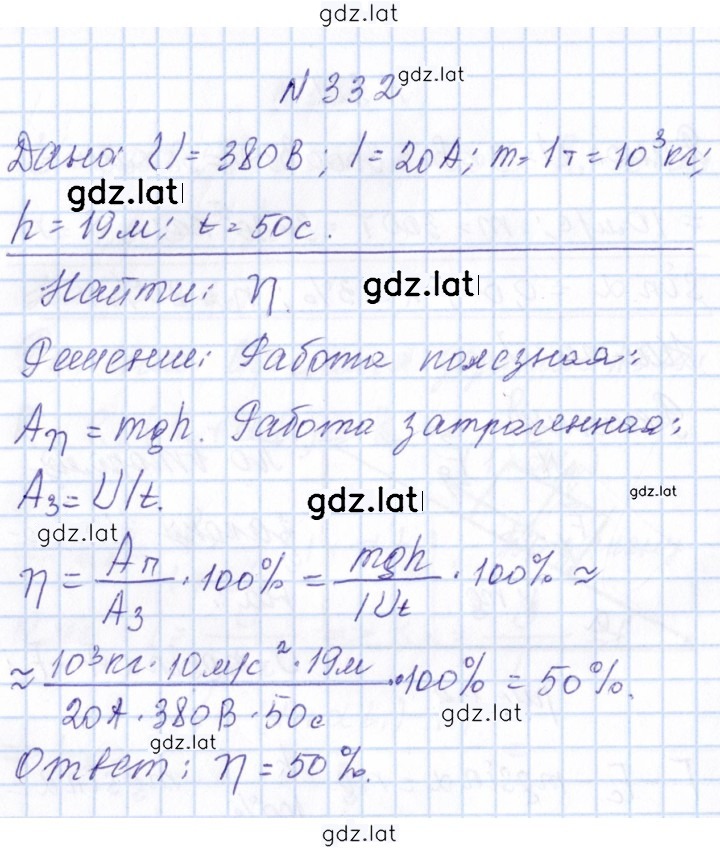 gdz.lat
N 332 gdz.lat
Дано: U = 380 В; I = 20 А; m = 1 т = 10³ кг;
gdz.lat
h = 19 м; t = 50 с.
Найти: η. gdz.lat
Решение: Работа полезная:
Aп = mgh. Работа затраченная:
Aз = UIt. gdz.lat gdz.lat
gdz.lat
η = Aп/Aз · 100% = mgh/IUt · 100% ≈
≈ 10³ кг · 10 м/с² · 19 м / 20 А · 380 В · 50 с · 100% = 50%.
gdz.lat
gdz.lat
Ответ: η = 50%.
gdz.lat